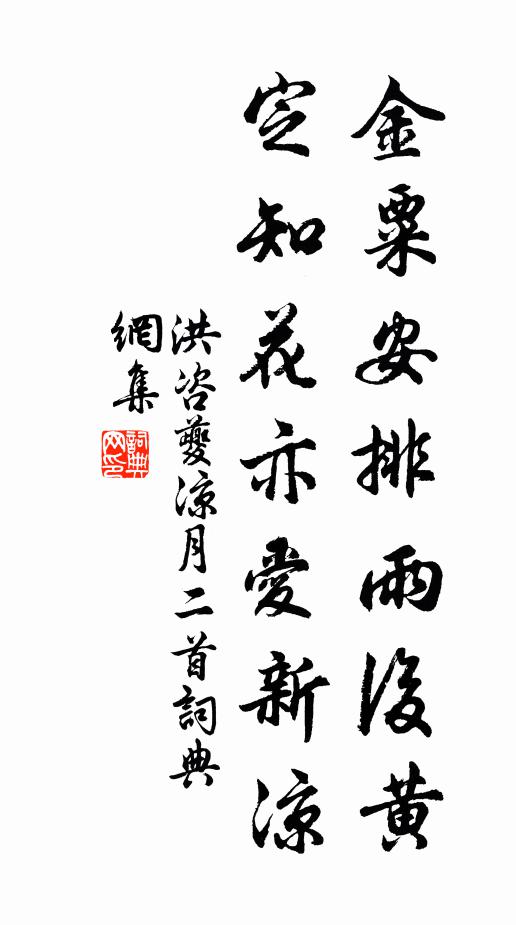 金粟安排雨後黃
定知花亦愛新涼
洪咨夔涼月二首詞典
網集
詞典
网印